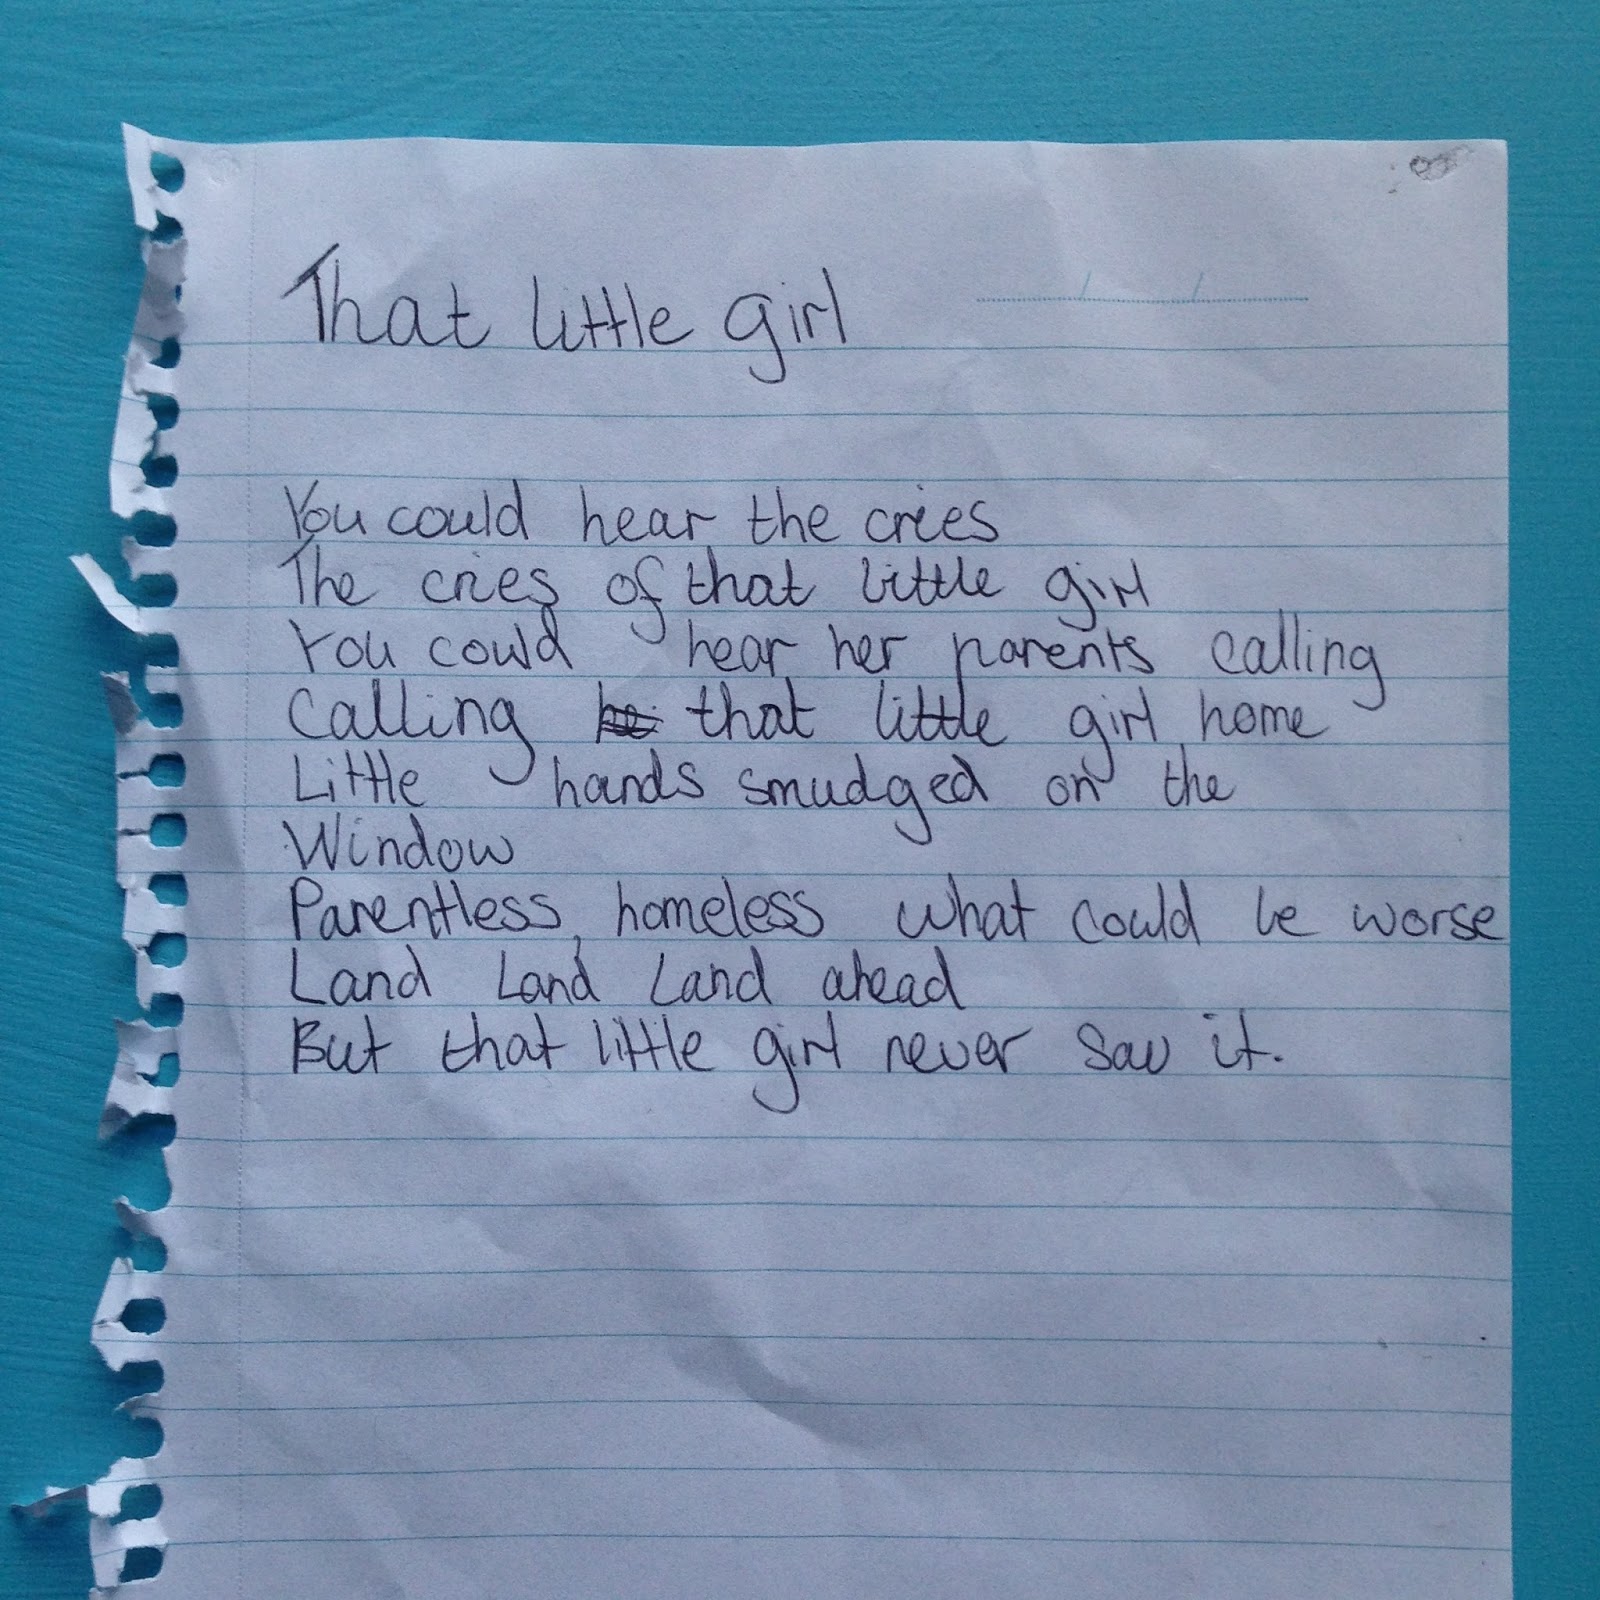 That little girl
You could hear the cries
The cries of that little girl
You could hear her parents calling
Calling that little girl home
Little hands smudged on the
Window
Parentless, homeless what could be worse
Land Land Land ahead
But that little girl never saw it.